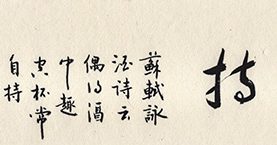 持
蘇軾詠
酒诗云
偶得酒
中趣
空杯常
自持